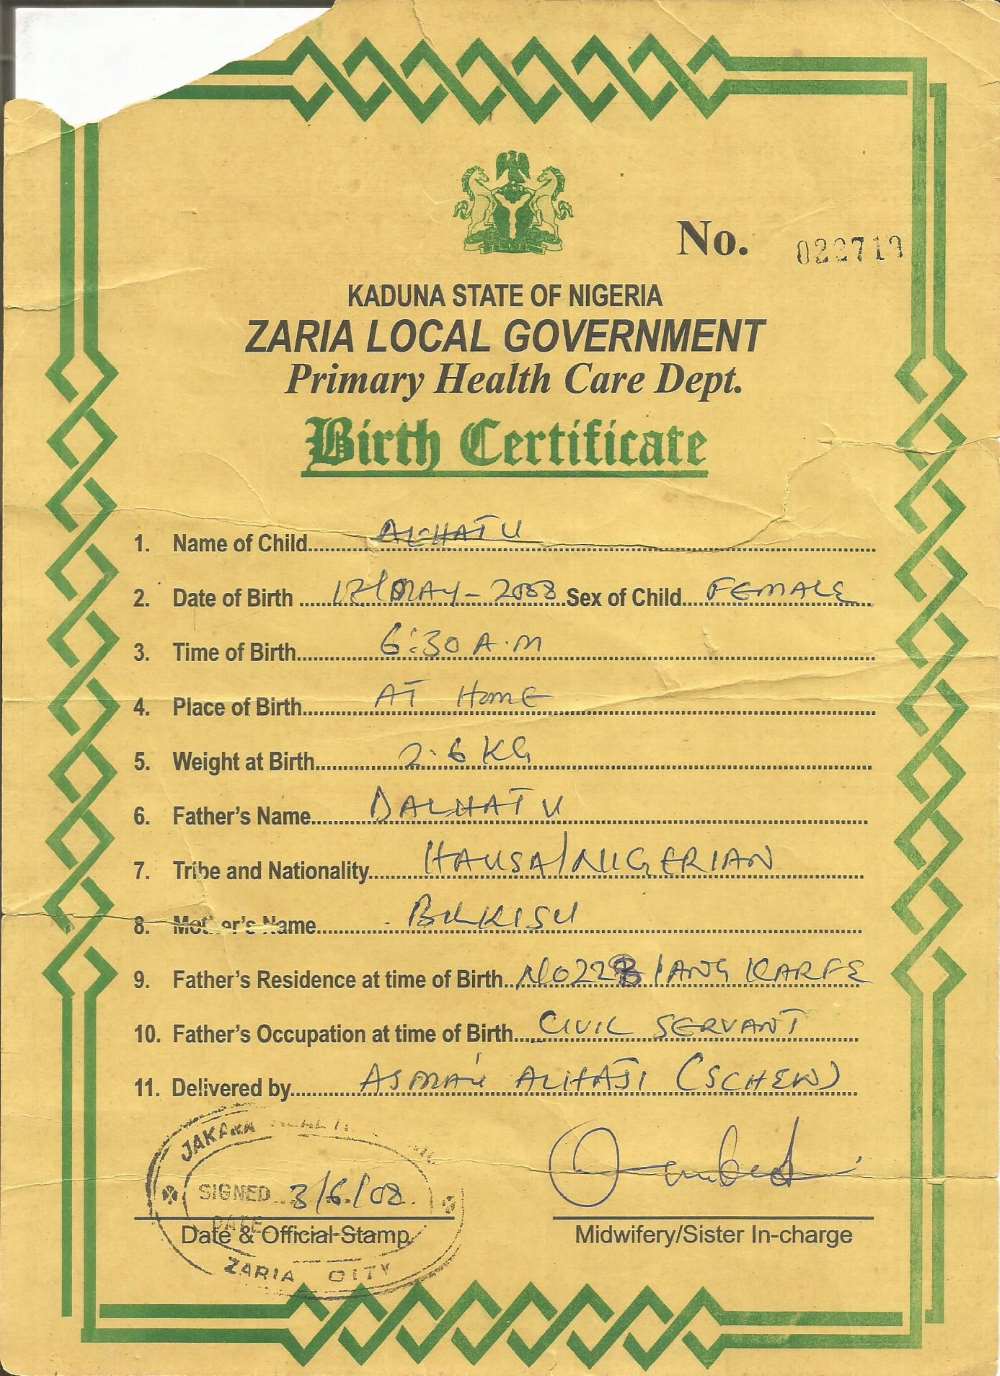 No. 022719
KADUNA STATE OF NIGERIA
ZARIA LOCAL GOVERNMENT
Primary Health Care Dept.
Birth Certificate
1. Name of Child ALHATU
2. Date of Birth 17/MAY-2008 Sex of Child FEMALE
3. Time of Birth 6:30 A.M
4. Place of Birth AT HomE
5. Weight at Birth 2.6 KG
6. Father's Name DALHATU
7. Tribe and Nationality HAUSA/NIGERIAN
8. Mother's Name BILKISU
9. Father's Residence at time of Birth NO22B KARFE
10. Father's Occupation at time of Birth CIVIL SERVANT
11. Delivered by ASMAU ALHAJI (SCHEW)
JAKARA
SIGNED 3/6/08
DATE
Date & Official Stamp
Midwifery/Sister In-charge
ZARIA CITY